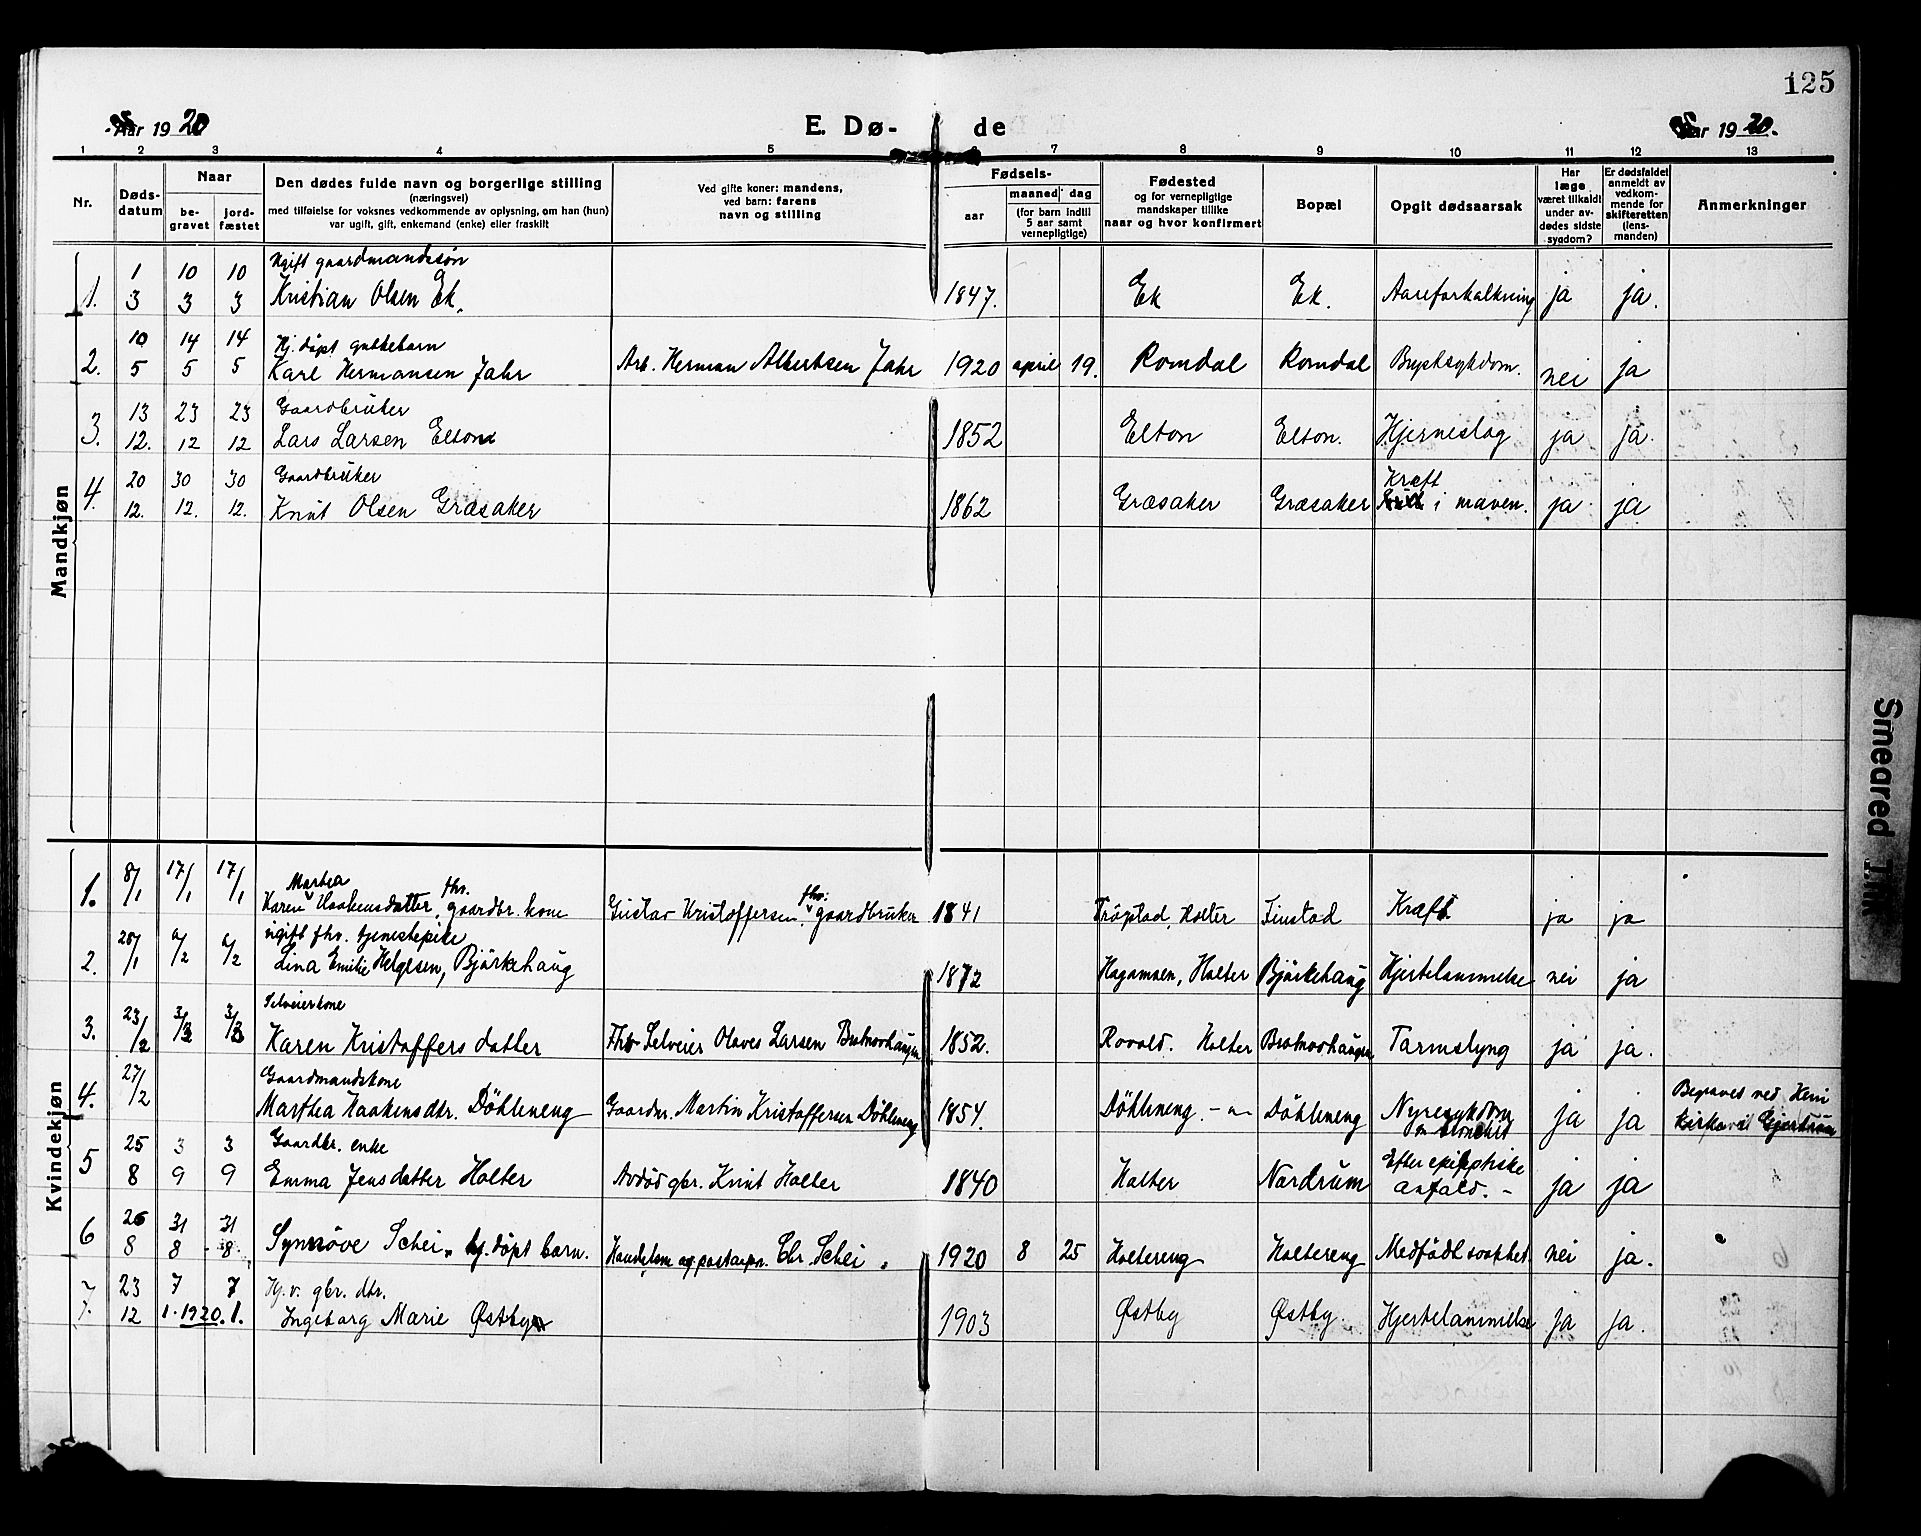 125
Aar 1920
E. Dø-
de
Aar 1920.
1 2 3 4 5 6 7 8 9 10 11 12 13
Nr.
Døds-
datum
Naar
be-
gravet
jord-
fæstet
Den dødes fulde navn og borgerlige stilling
(næringsvei)
med tilføielse for voksnes vedkommende av oplysning, om han (hun)
var ugift, gift, enkemand (enke) eller fraskilt
Ved gifte koner: mandens,
ved barn: farens
navn og stilling
Fødsels-
aar
maaned dag
(for barn indtil
5 aar samt
vernepligtige)
Fødested
og for vernepligtige
mandskaper tillike
naar og hvor konfirmert
Bopæl
Opgit dødsaarsak
Har
læge
været tilkaldt
under av-
dødes sidste
sygdom?
Er dødsfaldet
anmeldt av
vedkom-
mende for
skifteretten
(lens-
manden)
Anmerkninger
Mandkjøn
1 10 10 Ugift gaardmandssøn
1. 3 3 3 Kristian Olsen Ek. 1847. Ek Ek. Aareforkalkning ja ja.
10 14 14 Hj. døpt guttebarn
2. 5 5 5 Karl Hermansen Jahr Arb. Herman Albertsen Jahr 1920 april 19. Romdal Romdal Brystsykdom. nei ja
13 23 23 Gaardbruker
3. 12. 12 12 Lars Larsen Elton 1852 Elton Elton. Hjerneslag ja ja.
20 30 30 Gaardbruker Kræft
4. 12. 12. 12. Knut Olsen Græsaker 1862 Græsaker Græsaker i maven. ja ja
Kvindekjøn
8/1 17/1 17/1 Marthea fhv. fhv.
1. Karen Haakensdatter, gaardbr. kone Gustav Kristoffersen, gaardbruker 1841 Trøgstad, Holter Finstad Kræft ja ja
28/1 6/2 6/2 ugift fhv. tjenestepike
2. Lina Emilie Helgesen, Bjørkehaug 1872 Hagamoen, Holter Bjørkehaug Hjertelammelse nei ja
23/2 3/3 3/3 Selveierkone
3. Karen Kristoffersdatter Fhv. Selveier Olaves Larsen Bratnovhaugen 1852. Rovold. Holter Bratnovhaugen Tarmslyng ja ja.
27/2 Gaardmandskone
4. Marthea Haakensdtr. Döhleneng Gaardm. Martin Kristoffersen Döhleneng 1854. Döhleneng. - " - Döhleneng Nyresykdom ja ja Begraves ved Heni
kirke i Gjerdrum
25 3 3 Gaardbr. enke
5 8 9 9 Emma Jensdatter Holter Avdød gbr. Knut Holter 1840 Holter Nordrum Efter epileptiske
anfald. - ja ja
26 31 31
6 8 8 8. Synnöve Schei, hj. døpt barn. Handelsm og postaapn. Chr. Schei. 1920 8 25 Holtereng Holtereng Medfødt svakhet nei ja.
23 7 7 Hj. v. gbr. dtr.
7. 12 1. 1920. 1. Ingeborg Marie Østby 1903 Østby Østby. Hjertelammelse ja ja.
Smeared Ink